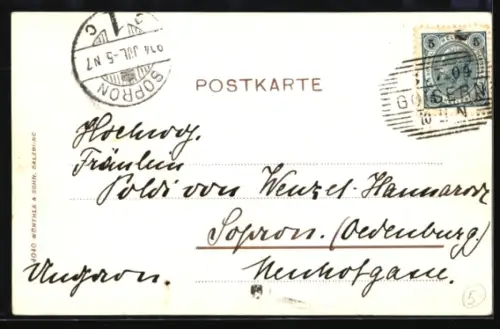 1
C
914 JUL.-5. N7
SOPRON
5
7.04
GOISERN
10 N
POSTKARTE
Hochwg.
Fräulein
Poldi von Wenzel-Hannarodz
Sopron. (Oedenburg)
Ungarn. Neuhofgasse.
4040 WÜRTHLE & SOHN, SALZBURG
5